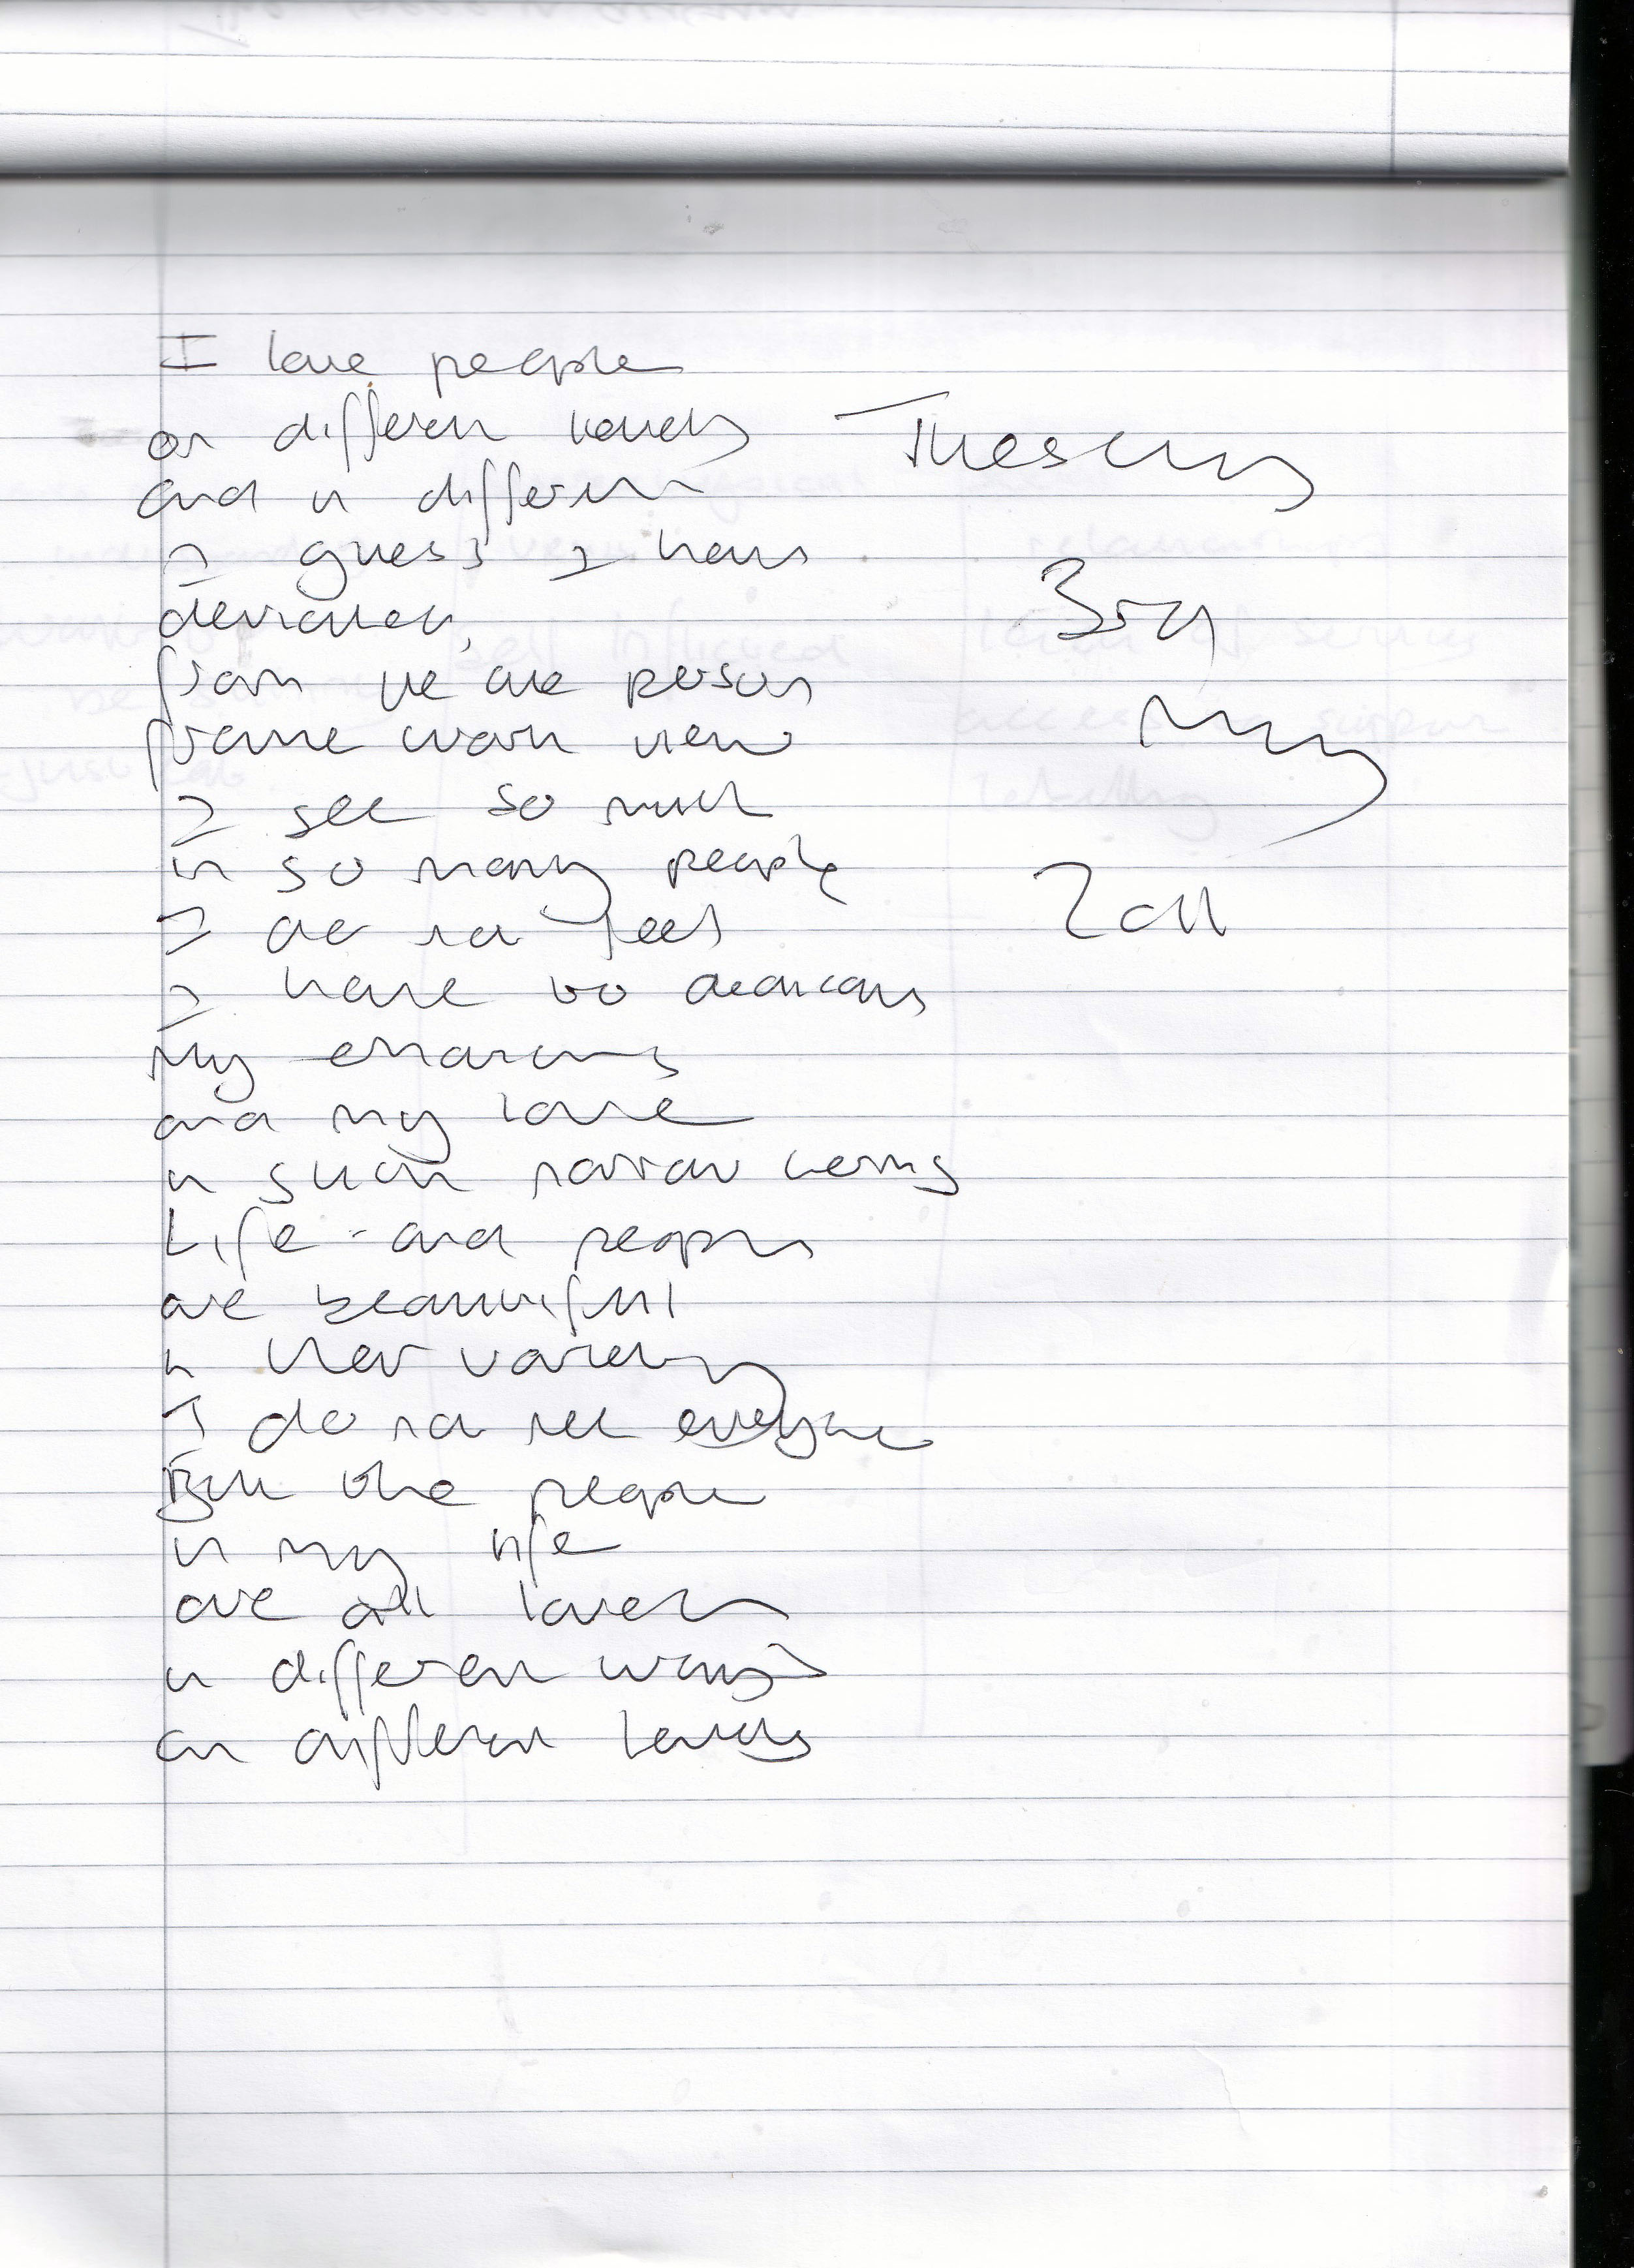 I love people
on different levels
Tuesday
and in different
I guess I have
deviated,
3rd
from the one person
frame work view
May
I see so much
in so many people
2011
I do not feel
I have to
My
and my love
in such narrow
Life - and people
are beautiful
in their variety
I do not see everyone
But the people
in my life
are all loved
in different ways
on different levels